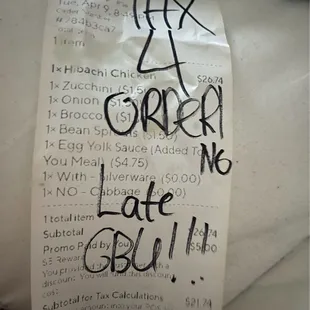 THX
Tue, Apr 9, 8:
4
1 item
1× Hibachi Chicken $26.74
1× Zucchini ($1.5
1× Onion
1× Broccol
ORDER!
1× Bean Sprouts ($1.50)
1× Egg Yolk Sauce (Added To
NO
You Meal) ($4.75)
1× With - Silverware ($0.00)
1× NO - Cabbage ($0.00)
Late
1 total item
Subtotal $26.74
Promo Paid by You $5.00
GBU!!!
$5 Reward
You provided
discount. You will fund this discount
cost.
Subtotal for Tax Calculations $21.74